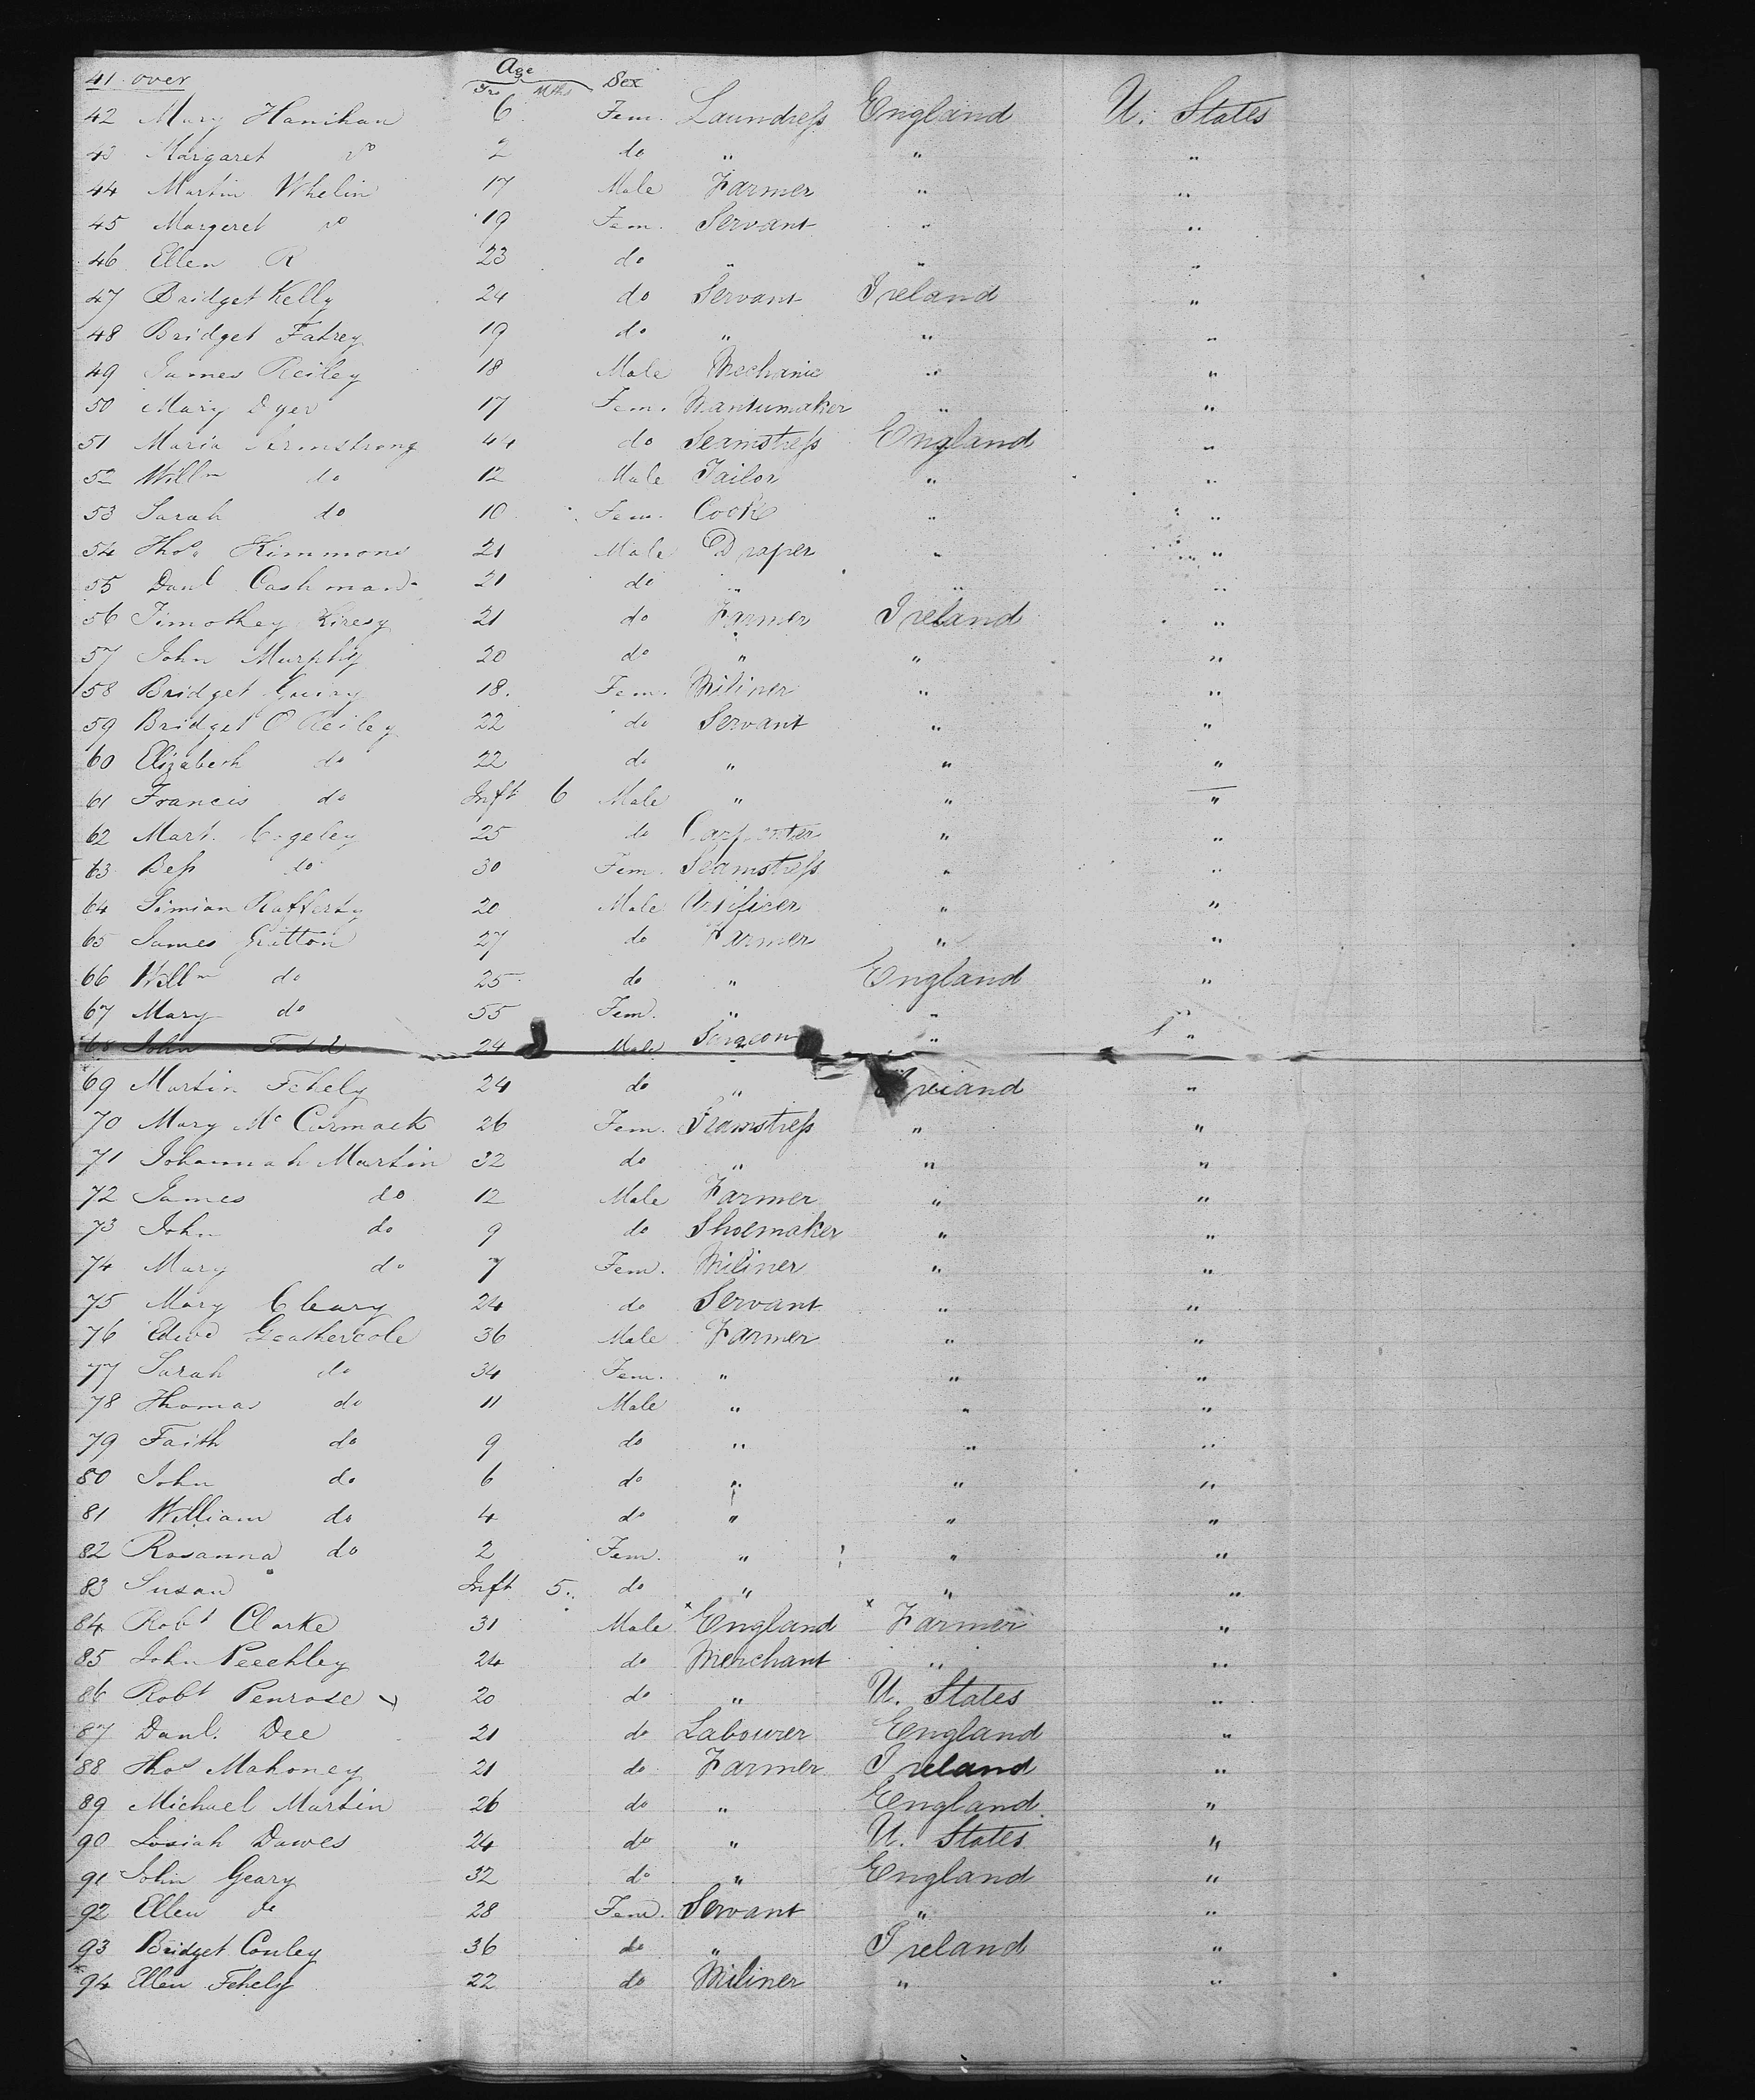 41 over Age Sex
Yrs Mths
42 Mary Hanihan 6 Fem. Laundress England U. States
43 Margaret do 2 do " " "
44 Martin Whelin 17 Male Farmer " "
45 Margeret do 19 Fem. Servant " "
46 Ellen R 23 do " " "
47 Bridget Kelly 24 do Servant Ireland "
48 Bridget Fahrey 19 do " " "
49 James Reiley 18 Male Mechanic " "
50 Mary Dyer 17 Fem. Mantumaker " "
51 Maria Armstrong 44 do Seamstress England "
52 Willm do 12 Male Tailor " "
53 Sarah do 10 Fem. Cook " "
54 Thos. Kimmons 21 Male Draper " "
55 Danl Cashman 21 do " " "
56 Timothey 21 do Farmer Ireland "
57 John Murphy 20 do " " "
58 Bridget 18. Fem. Miliner " "
59 Bridget O Reiley 22 do Servant " "
60 Elizabeth do 22 do " " "
61 Francis do Inft 6 Male " " "
62 Mart. 25 do Carpenter " "
63 Bess do 30 Fem. Seamstress " "
64 Simian Rafferty 20 Male Artificer " "
65 James Gritton 27 do Farmer " "
66 Willm do 25 do " England "
67 Mary do 55 Fem. " " "
68 John Todd 24 Male Surgeon " "
69 Martin Fehely 24 do " Ireland "
70 Mary Mc Cormack 26 Fem. Seamstress " "
71 Johannah Martin 32 do " " "
72 James do 12 Male Farmer " "
73 John do 9 do Shoemaker " "
74 Mary do 7 Fem. Miliner " "
75 Mary Cleary 24 do Servant " "
76 Edwd Geathercole 36 Male Farmer " "
77 Sarah do 34 Fem. " " "
78 Thomas do 11 Male " " "
79 Faith do 9 do " " "
80 John do 6 do " " "
81 William do 4 do " " "
82 Rosanna do 2 Fem. " " "
83 Susan Inft 5. do " " "
84 Robt Clarke 31 Male x England x Farmer "
85 John Peechley 24 do Merchant " "
86 Robt Penrose 20 do " U. States "
87 Danl. Dee 21 do Labourer England "
88 Thos Mahoney 21 do Farmer Ireland "
89 Michael Martin 26 do " England "
90 Josiah Dawes 24 do " U. States "
91 John Geary 32 do " England "
92 Ellen do 28 Fem. Servant " "
93 Bridget Conley 36 do " Ireland "
94 Ellen Fehely 22 do Miliner " "